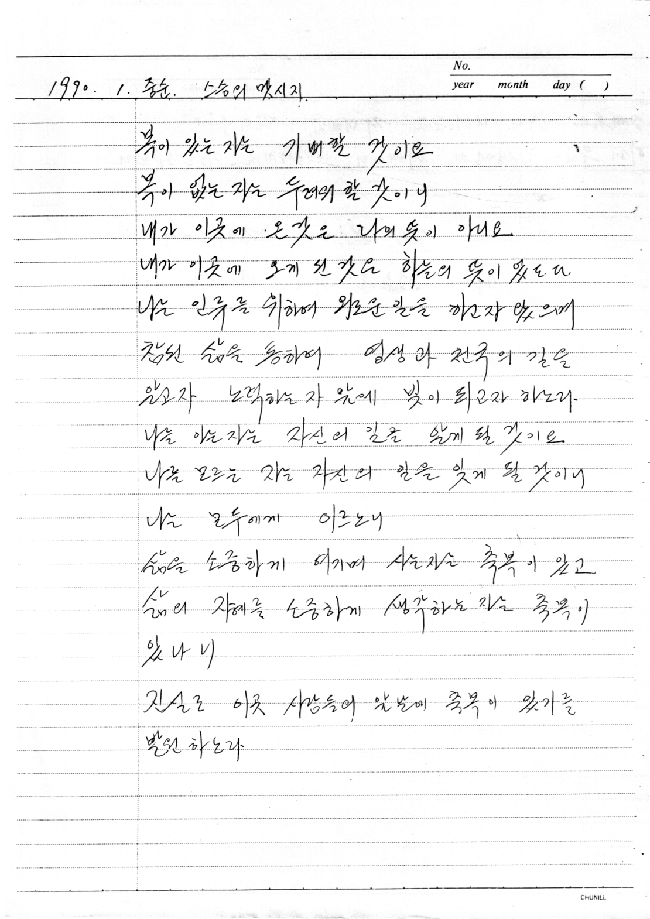 No.
year month day ( )
1990. 1. 중순. 스승의 멧시지
복이 있는 자는 기뻐할 것이요
복이 없는 자는 두려워 할 것이니
내가 이곳에 온것은 나의 뜻이 아니요
내가 이곳에 오게 된 것은 하늘의 뜻이 있도다
나는 인류를 위하여 외로운 일을 하고자 왔으며
참된 삶을 통하여 영생과 천국의 길을
알고자 노력하는 자 앞에 빛이 되고자 하노라
나를 아는 자는 자신의 길을 알게 될 것이요
나를 모르는 자는 자신의 일을 잊게 될 것이니
나는 모두에게 이르노니
삶을 소중하게 여기며 사는자는 축복이 있고
삶의 지혜를 소중하게 생각하는 자는 축복이
있나니
진실로 이곳 사람들의 앞날에 축복이 있기를
발원 하노라
CHUNILL